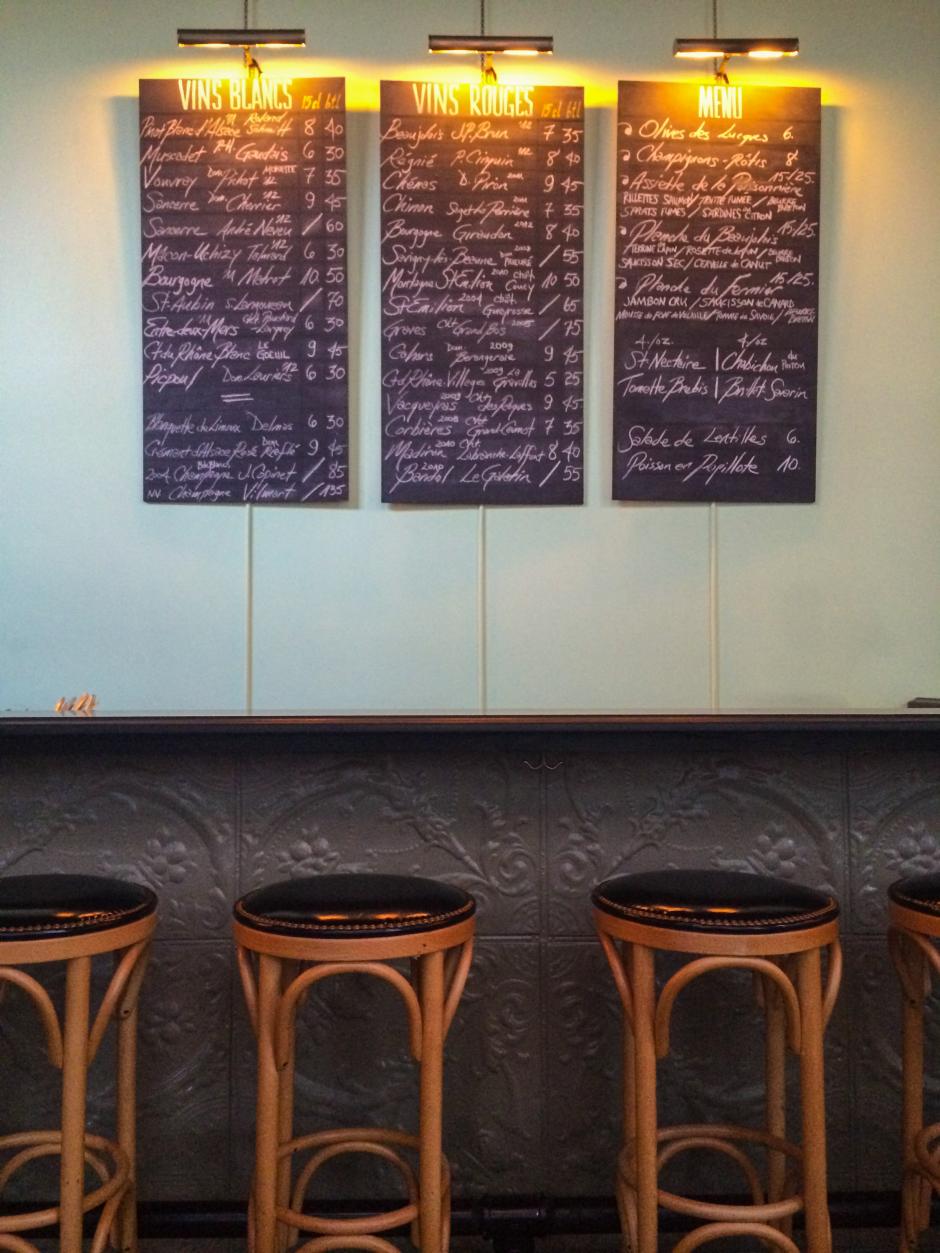 VINS BLANCS 15cl btl
Pinot Blanc d'Alsace Roland Schmitt 8 40
Muscadet Gautais 6 30
Vouvray Dom Pichot '12 7 35
Sancerre Dom Cherrier '12 9 45
Sancerre André Neveu '12 / 60
Mâcon-Uchizy Talmard '12 6 30
Bourgogne 10 50
St-Aubin / 70
Entre-deux-Mers 6 30
Ct du Rhône Blanc LE 9 45
Picpoul Dom Lauriers '12 6 30
Blanquette de Limoux Delmas 6 30
Crémant d'Alsace Rosé Dom 9 45
2004 Champagne J. Copinet / 85
NV Champagne Vilmart / 135
VINS ROUGES 15cl btl
Beaujolais J.P. Brun '12 7 35
Régnié P. 8 40
Chénas D. Piron 9 45
Chinon 7 35
Bourgogne Giraudon 8 40
Savigny-lès-Beaune Dom PRIEURÉ / 55
Montagne St-Emilion 2010 chât 10 50
St-Emilion 2004 chât / 65
Graves Cht Grand Bos 2005 / 75
Cahors Dom 2009 9 45
Ct d/Rhône-Villages 2009 5 25
Vacqueyras 9 45
Corbières 7 35
Madiran 2010 Cht Labranche-Laffont 8 40
Bandol 2010 Le Galantin / 55
MENU
Olives des Lucques 6.
Champignons-Rôtis 8
Assiette de la Poissonnière 15/25.
RILLETTES SAUMON / TRUITE FUMÉE / BEURRE BRETON
SPRATS FUMÉS / SARDINES AU CITRON
Planche du Beaujolais 15/25.
TERRINE LAPIN / ROSETTE de LYON / BEURRE BRETON
SAUCISSON SEC / CERVELLE de CANUT
Planche du Fermier 15/25.
JAMBON CRU / SAUCISSON de CANARD
MOUSSE de FOIE de VOLAILLE / TOMME de SAVOIE / BEURRE BRETON
4./oz 4/oz
St-Nectaire | Chabichou du Poitou
Tomette Brebis | Brillat-Savarin
Salade de Lentilles 6.
Poisson en Papillote 10.